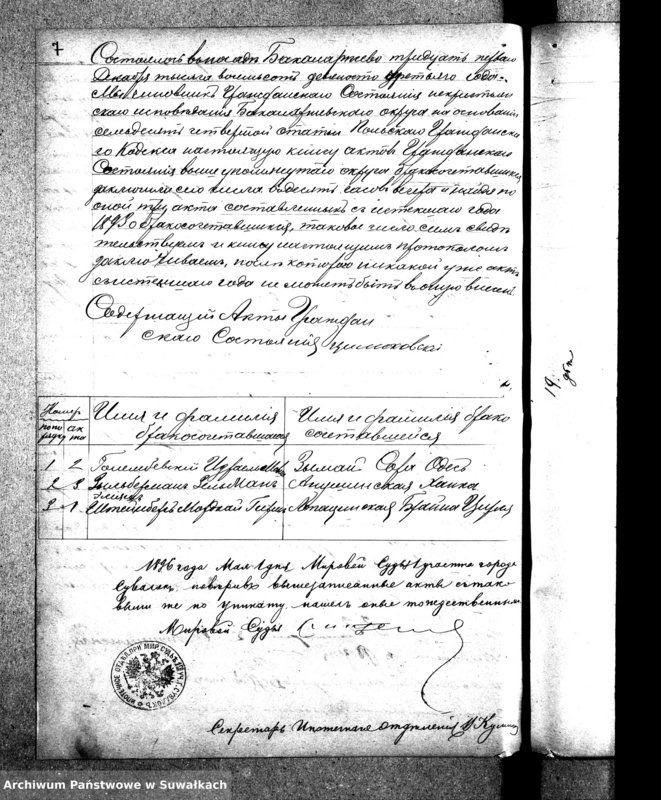 7
Состоялось въ посадѣ Бакаларжево тридцать перваго
Декабря тысяча восемьсотъ девяносто третьяго года.
Мы чиновникъ Гражданскаго Состоянія нехристіан
скаго исповѣданія Бакаларжевскаго округа на основаніи
семьдесятъ четвертой статьи Польскаго Гражданска
го Кодекса настоящую книгу актовъ Гражданскаго
Состоянія выше упомянутаго округа бракосочетавшихся
заключили сего числа въ десять часовъ вечера и найдя по
оной три акта составленныхъ съ истекшаго года
1893 о бракосочетавшихся, таковое число симъ свидѣ
тельствуемъ и книгу настоящимъ протоколомъ
заключиваемъ, послѣ котораго никакой уже актъ
съ истекшаго года не можетъ быть въ оную внесенъ.
Содержащій Акты Граждан
скаго Состоянія Цимоховскі
Номеръ
поряд ак та
Имя и фамилія бракосочетавшагося
Имя и фамилія брако сочетавшейся
1 2 Голембевскій Израель Зымай Сора Одесъ
2 3 Зыльберманъ Зельманъ Анушинская Ханка
3 1 Штейнберъ Мордхай Гирш Лопацинская Брайна Циреля
1896 года Мая 1 дня Мировой Судья 1 участка города
Сувалокъ, повѣривъ вышезаписанные акты съ тако
выми же по уникату, нашелъ оные тождественными.
Мировой Судья
Секретарь Ипотечнаго отдѣленія
19
Archiwum Państwowe w Suwałkach